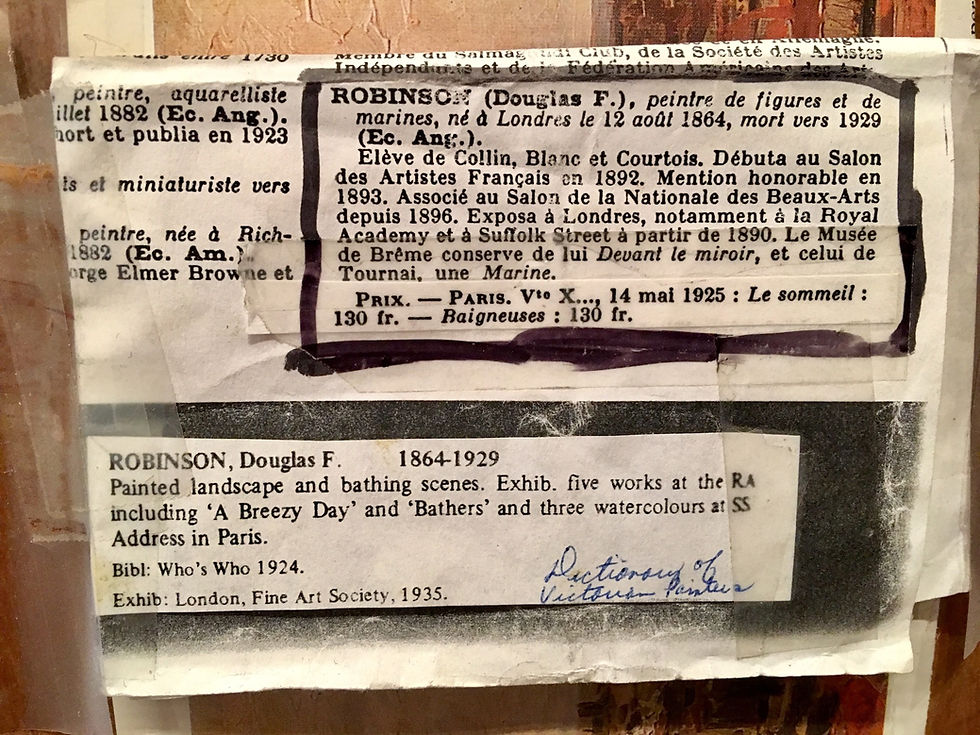 en Allemagne.
Membre du Salmagundi Club, de la Société des Artistes
Indépendants et de la Fédération Américaine des Arts
entre 1730
peintre, aquarelliste
illet 1882 (Ec. Ang.).
mort et publia en 1923
is et miniaturiste vers
peintre, née à Rich-
1882 (Ec. Am.).
orge Elmer Browne et
ROBINSON (Douglas F.), peintre de figures et de
marines, né à Londres le 12 août 1864, mort vers 1929
(Ec. Ang.).
Elève de Collin, Blanc et Courtois. Débuta au Salon
des Artistes Français en 1892. Mention honorable en
1893. Associé au Salon de la Nationale des Beaux-Arts
depuis 1896. Exposa à Londres, notamment à la Royal
Academy et à Suffolk Street à partir de 1890. Le Musée
de Brême conserve de lui Devant le miroir, et celui de
Tournai, une Marine.
PRIX. — PARIS. Vte X..., 14 mai 1925 : Le sommeil :
130 fr. — Baigneuses : 130 fr.
ROBINSON, Douglas F. 1864-1929
Painted landscape and bathing scenes. Exhib. five works at the RA
including ‘A Breezy Day’ and ‘Bathers’ and three watercolours at SS
Address in Paris.
Bibl: Who's Who 1924.
Exhib: London, Fine Art Society, 1935.
Dictionary of
Victorian Painters